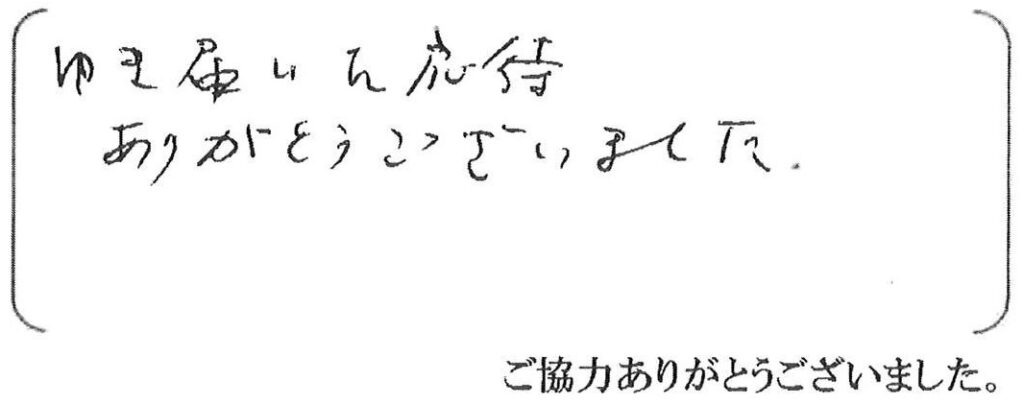 ゆき届いた応待
ありがとうございました.
ご協力ありがとうございました。